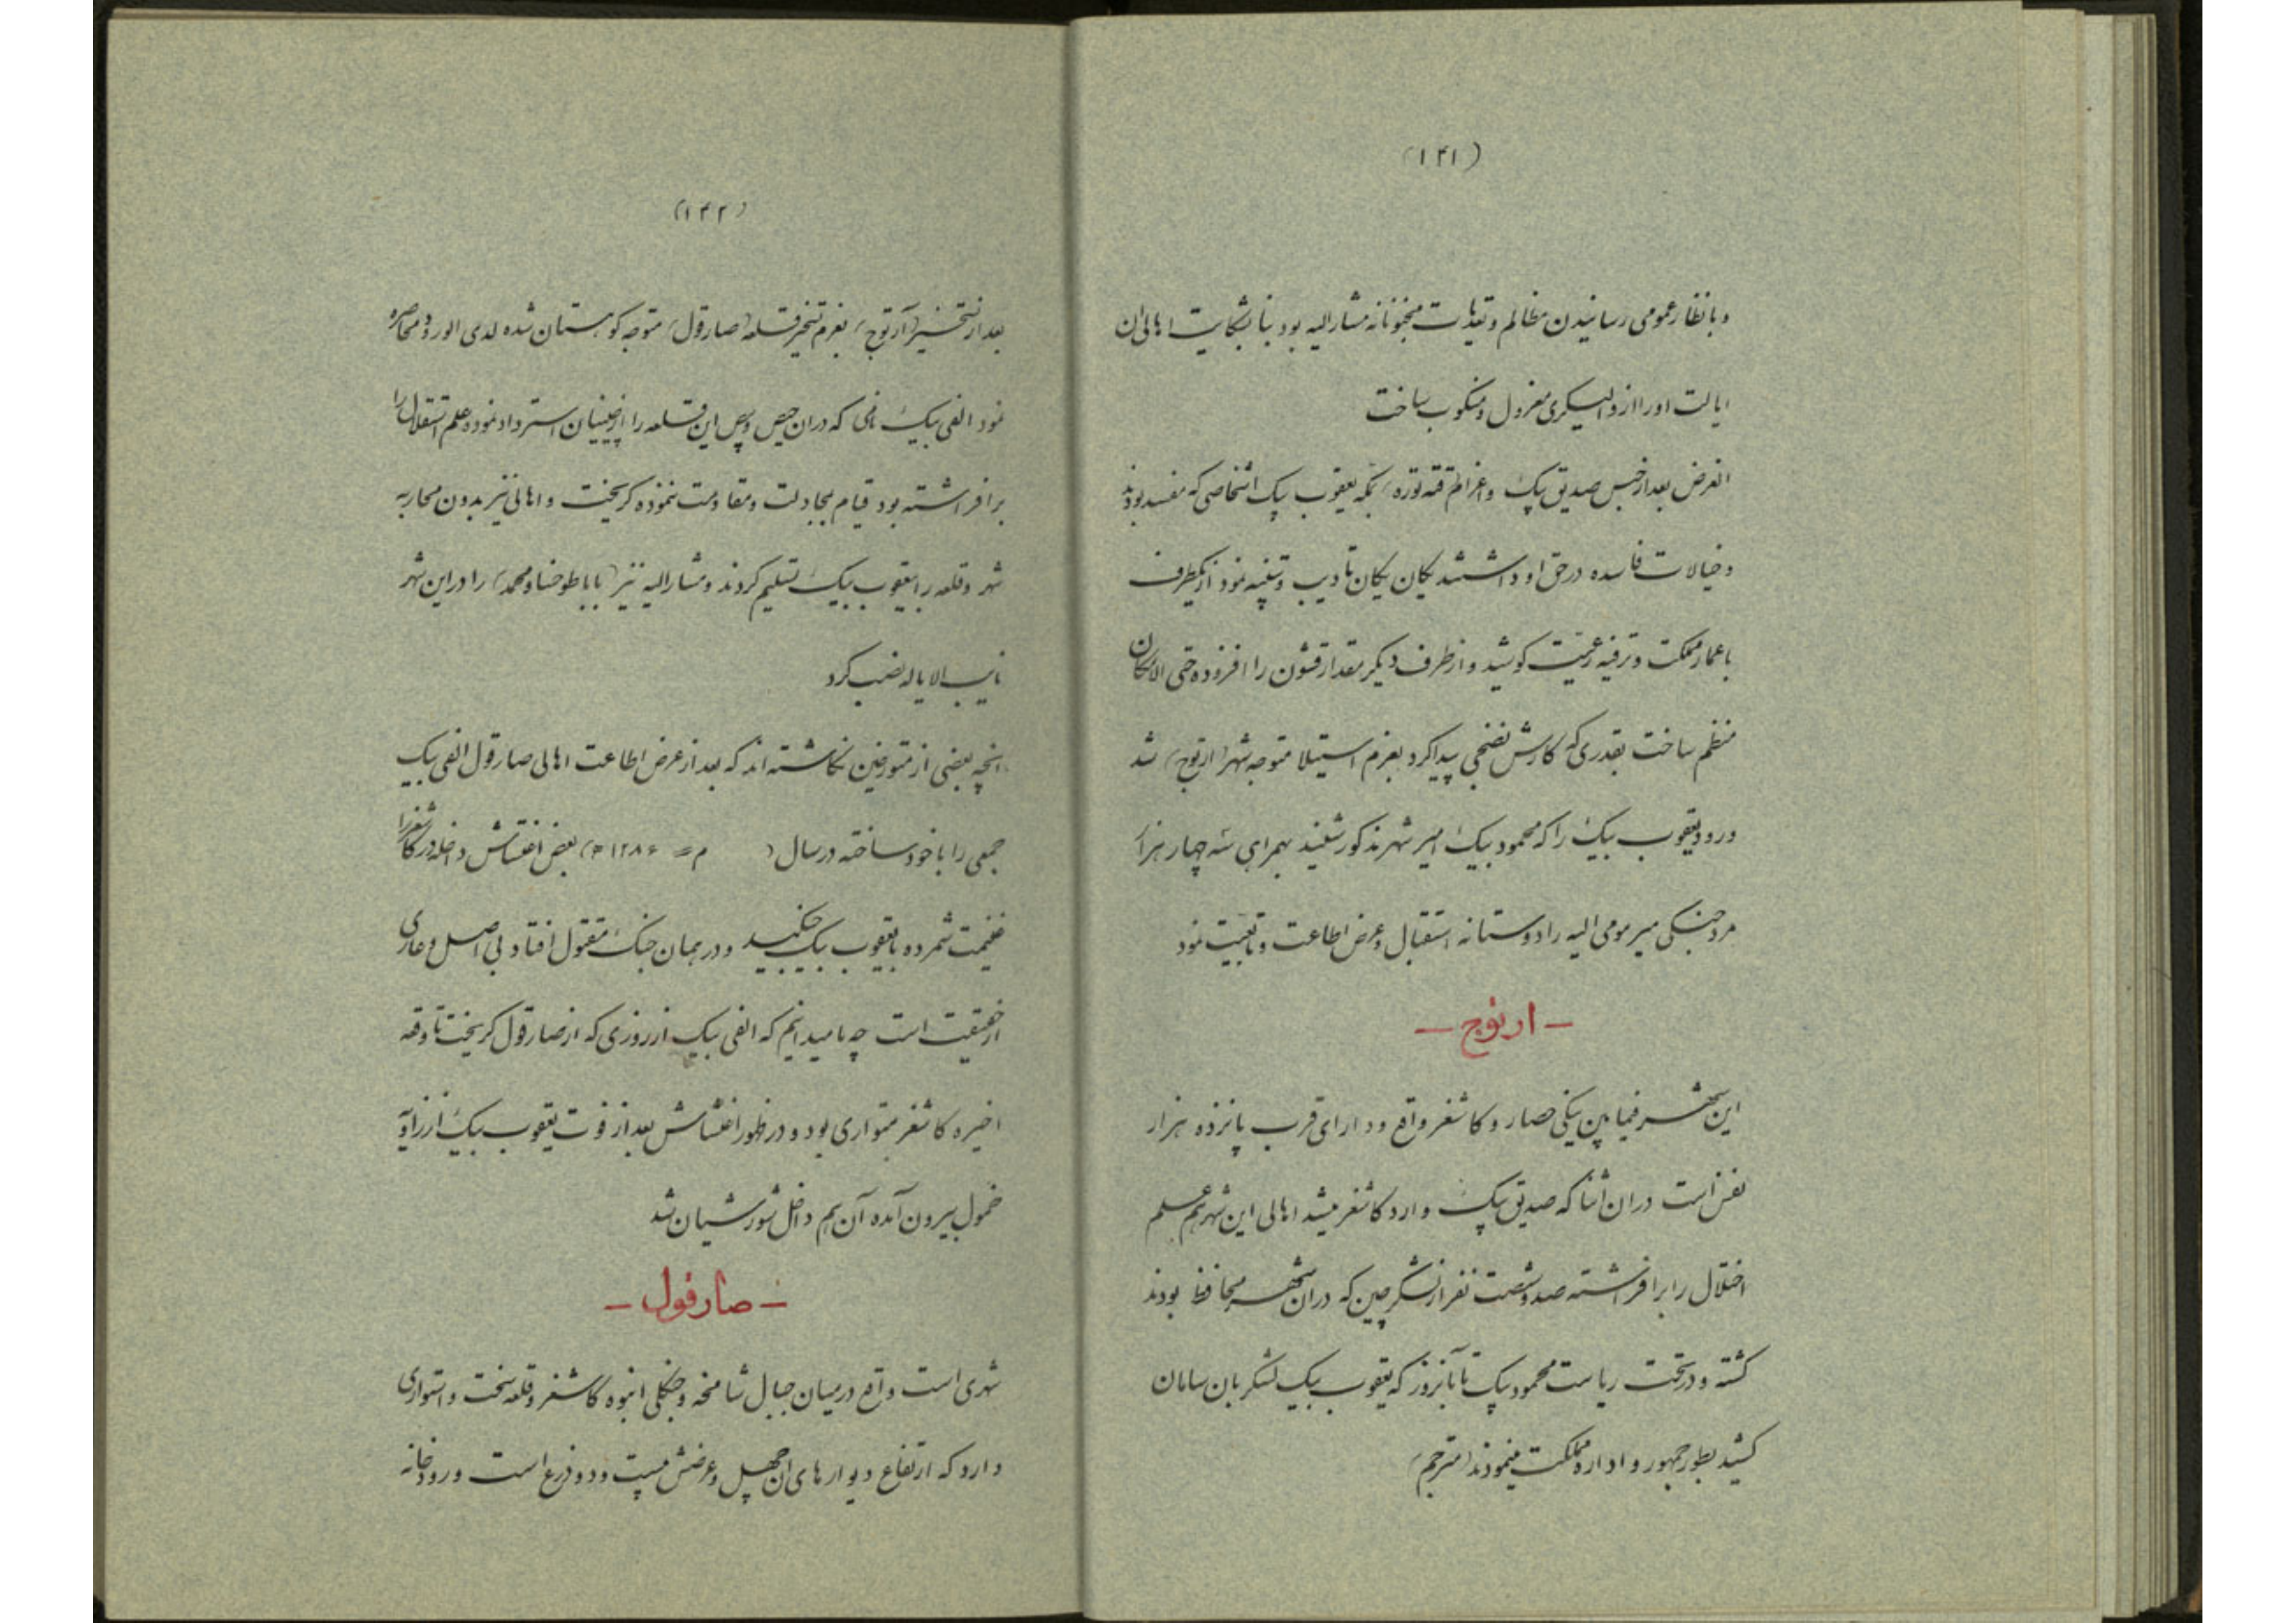 (۱۴۱)
و بانظار عمومی رسانیدن مظالم و تعدیات مجنونانه مشارالیه بود بنا بشکایت اهالی ان
ایالت اورا از والیسکری معزول و منکوب ساخت
الغرض بعد از حبس صدیق بیک و اعزام قته توره بمکه یعقوب بیک اشخاصی که مفسد بودند
و خیالات فاسده در حق او داشتند یکان یکان تادیب و تنبیه نمود از یکطرف
باعمار مملکت و ترفیه رعیت کوشید و از طرف دیکر مقدار قشون را افزوده حتی الامکان
منظم ساخت بقدری که کارش نضجی پیدا کرد بعزم استیلا متوجه شهر (ارتوج) شد
ورود یعقوب بیک را که محمود بیک امیر شهر مذکور شنید بهمراهی سه چهار هزار
مرد جنکی میر مومی الیه را دوستانه استقبال و عرض اطاعت و تابعیت نمود
— ارتوج —
این شهر فیمابین ینکی حصار و کاشغر واقع و دارای قرب پانزده هزار
نفس است دران اثنا که صدیق بیک وارد کاشغر میشد اهالی این شهر هم علم
اختلال را برافراشته صد و شصت نفر از لشکر چین که دران شهر محافظ بودند
کشته و در تحت ریاست محمود بیک تا بانروز که یعقوب بیک لشکر بان سامان
کشید بطور جمهور و اداره مملکت مینمودند (مترجم)
(۱۴۲)
بعد از تسخیر (آرتوج) بعزم تسخیر قلعه (صارقول) متوجه کوهستان شده لدی الورود محاصره
نمود الفی بیک نامی که دران حیص و بیص این قلعه را از چینیان استرداد نموده و علم استقلال را
برافراشته بود قیام بمجادلت و مقاومت ننموده کریخت و اهالی نیز بدون محاربه
شهر و قلعه را بیعقوب بیک تسلیم کردند و مشارالیه نیز (بابا طوخساو محمد) را در این شهر
نایب الایاله نصب کرد
انچه بعضی از متورخین نکاشته اند که بعد از عرض اطاعت اهالی صارقول الفی بیک
جمعی را با خود ساخته در سال ( م = ۱۲۸۶ ه) بعض اغتشاش داخله در کاشغر را
غنیمت شمرده با یعقوب بیک جنکید و در همان جنک مقتول افتاد بی اصل و عاری
از حقیقت است چه ما میدانیم که الفی بیک از روزی که از صارقول کریخت تا وقعه
اخیره کاشغر متواری بود و در ظهور اغتشاش بعد از فوت یعقوب بیک از زاویه
خمول بیرون آمده آن هم داخل شورشیان شد
— صارقول —
شهری است واقع در میان جبال شامخه و جنکلی انبوه کاشغر و قلعه سخت و استواری
دارد که ارتفاع دیوارهای ان چهل و عرضش بیست و دو ذرع است و رودخانه